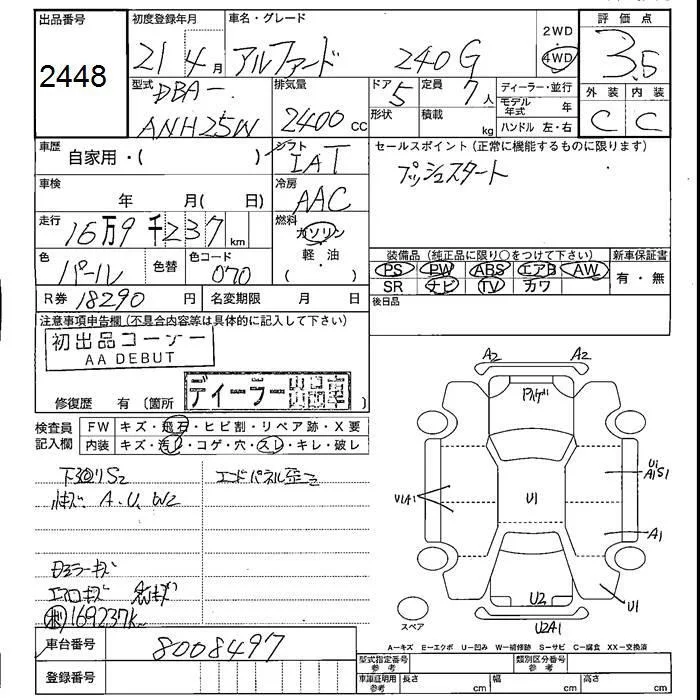 出品番号 初度登録年月 車名・グレード 2WD 評価点
2448 21 4月 アルファード 240G 4WD 3.5
型式 排気量 ドア 定員 ディーラー・並行 外装 内装
DBA- 5 7人 モデル年式 年 C C
ANH25W 2400cc 形状 積載 kg ハンドル 左・右
車歴 自家用・( ) シフト セールスポイント(正常に機能するものに限ります)
IAT プッシュスタート
車検 年 月( 日) 冷房
AAC
走行 16万9千237km 燃料
ガソリン
色 パール 色替 色コード 070 軽・油 装備品(純正品に限り○をつけて下さい) 新車保証書
( ) PS PW ABS エアB AW 有・無
R券 18290円 名変期限 月 日 SR ナビ TV カワ
後日品
注意事項申告欄(不具合内容等は具体的に記入して下さい)
初出品コーナー
AA DEBUT
修復歴 有(箇所 ディーラー出品車 )
検査員記入欄 FW キズ・飛石・ヒビ割・リペア跡・X要
内装 キズ・汚レ・コゲ・穴・スレ・キレ・破レ
下回りS2 エンドパネル歪ミ
小キズ A.U.W2
ドアミラーキズ
エアロキズ
169237K
車台番号 8008497
登録番号
A2 A2
U1
A1S1
U1A1 U1
A1
U2 U1
U2A1
スペア
A−キズ E−エクボ U−凹み W−補修跡 S−サビ C−腐食 XX−交換済
型式指定番号 参考 類別区分番号 参考
車庫証明用 参考 長さ cm 幅 cm 高さ cm